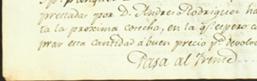 prestadas por D. Andres Rodriguez ha
ta la proxima cosecha, en la qe espero co
prar esta cantidad a buen precio pa devolve
Pasa al frente